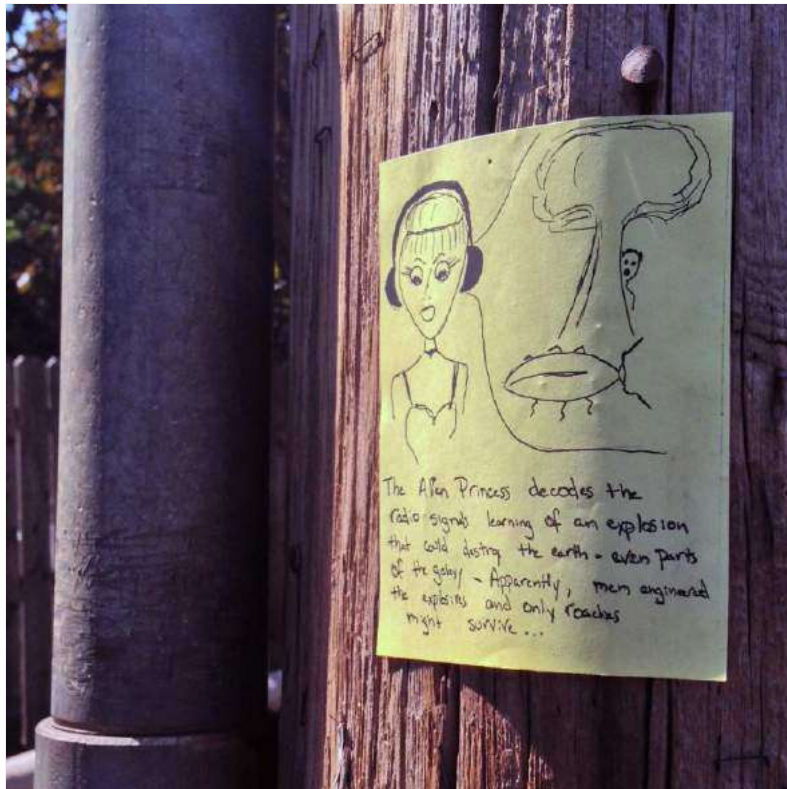 The Alien Princess decodes the
radio signals learning of an explosion
that could destroy the earth - even parts
of the galaxy - Apparently, men engineered
the explosives and only roaches
might survive...